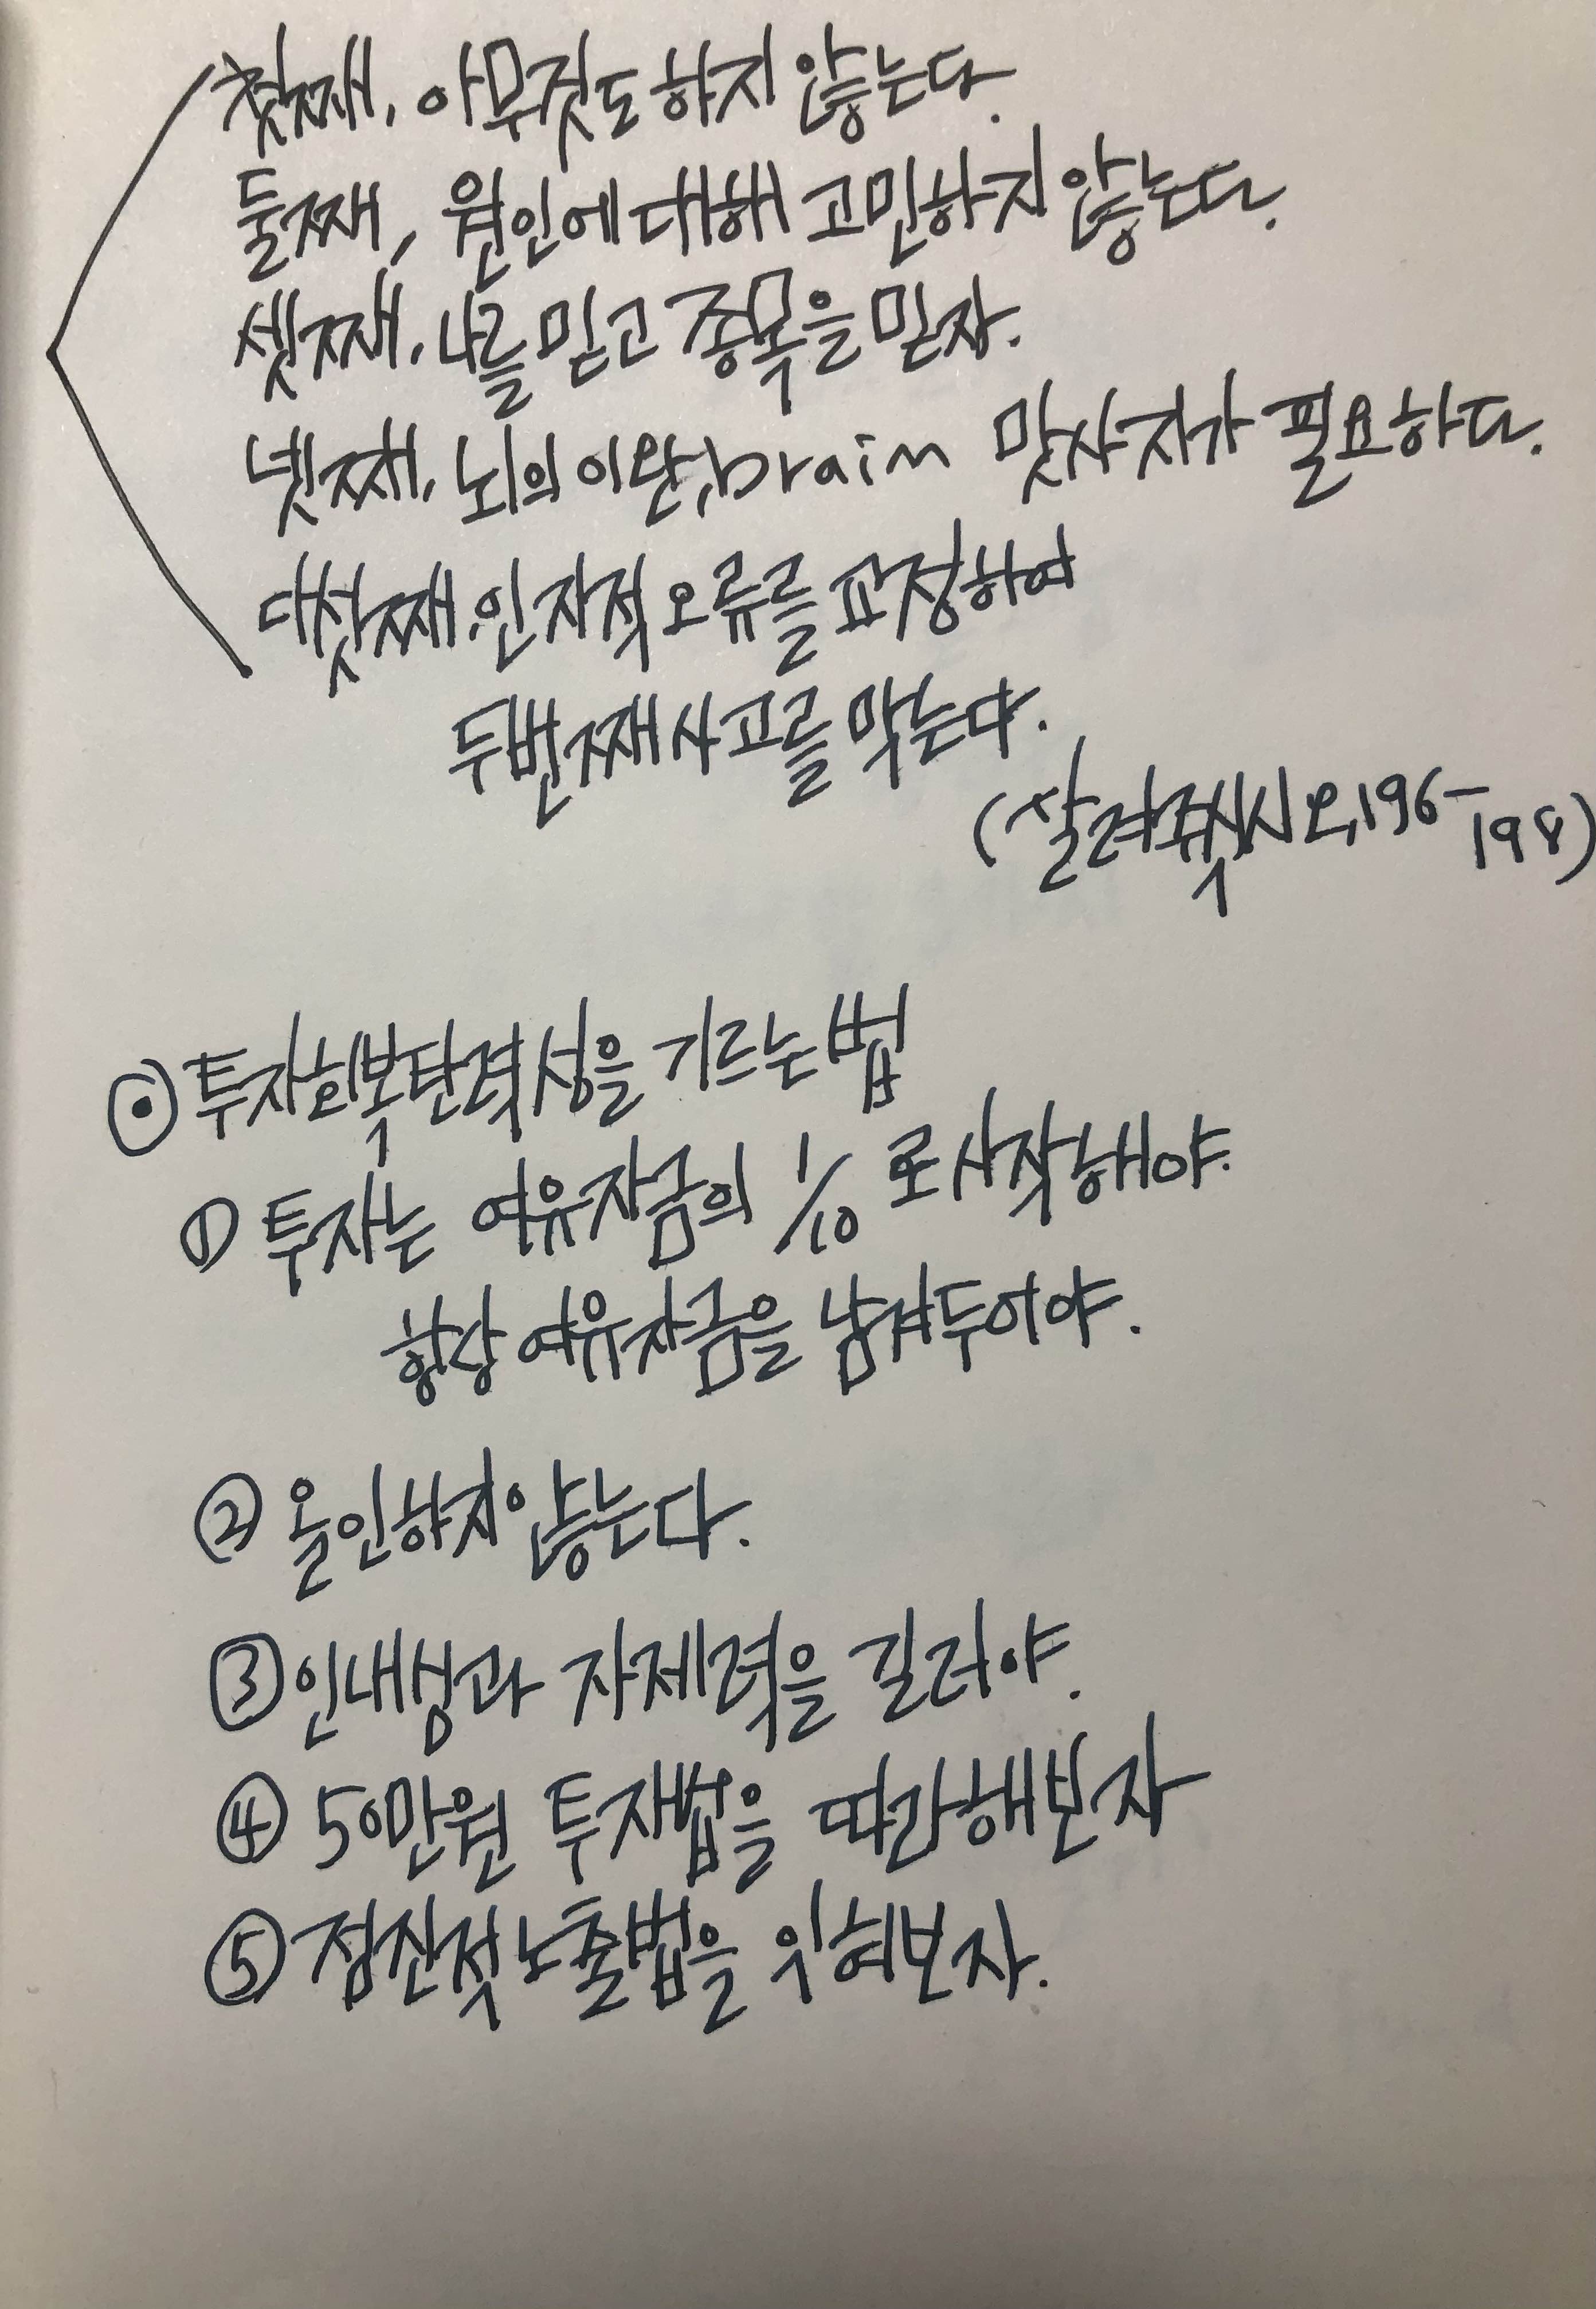 첫째, 아무것도 하지 않는다.
둘째, 원인에 대해 고민하지 않는다.
셋째, 나를 믿고 종목을 믿자.
넷째, 뇌의 이완, brain 맛사지가 필요하다.
다섯째, 인지적 오류를 교정하여
두번째 사고를 막는다.
(살려주식시오, 196-
198)
⊙ 투자회복탄력성을 기르는 법
① 투자는 여유자금의 1/10로 시작해야.
항상 여유자금을 남겨두어야.
② 올인하지 않는다.
③ 인내심과 자제력을 길러야.
④ 50만원 투자법을 따라해보자
⑤ 점진적 노출법을 익혀보자.